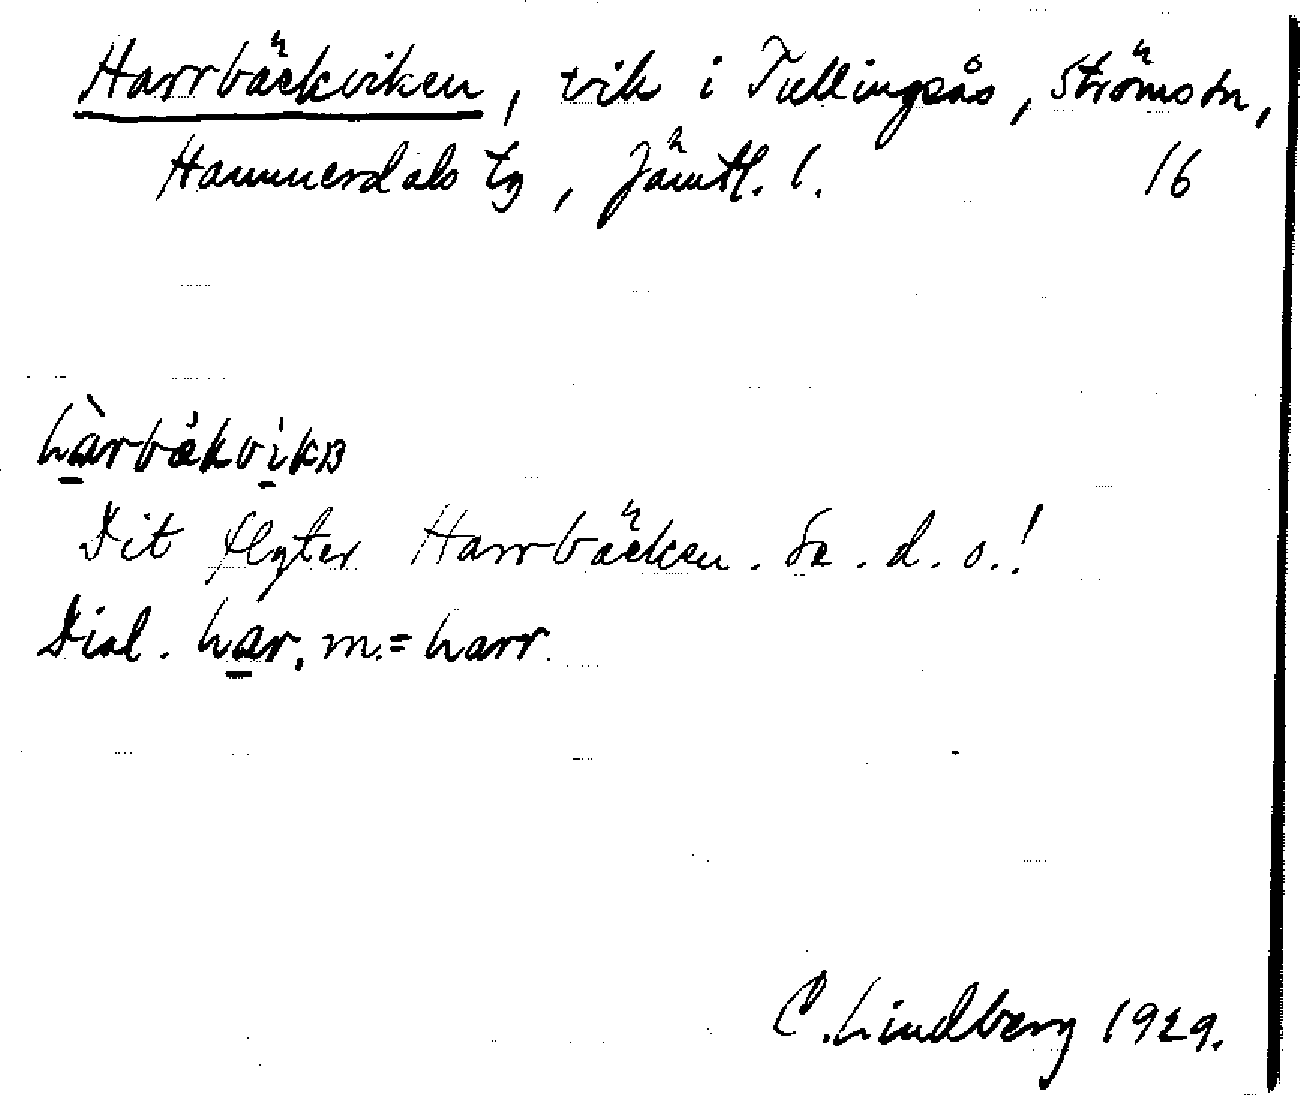 Harrbäckviken, vik i Tullingsås, Ströms sn,
Hammerdals tg, Jämtl. l. 16
hàrbäkvikɞ
Dit flyter Harrbäcken. Se. d. o.!
Dial. har, m. = harr.
C. Lindberg 1929.